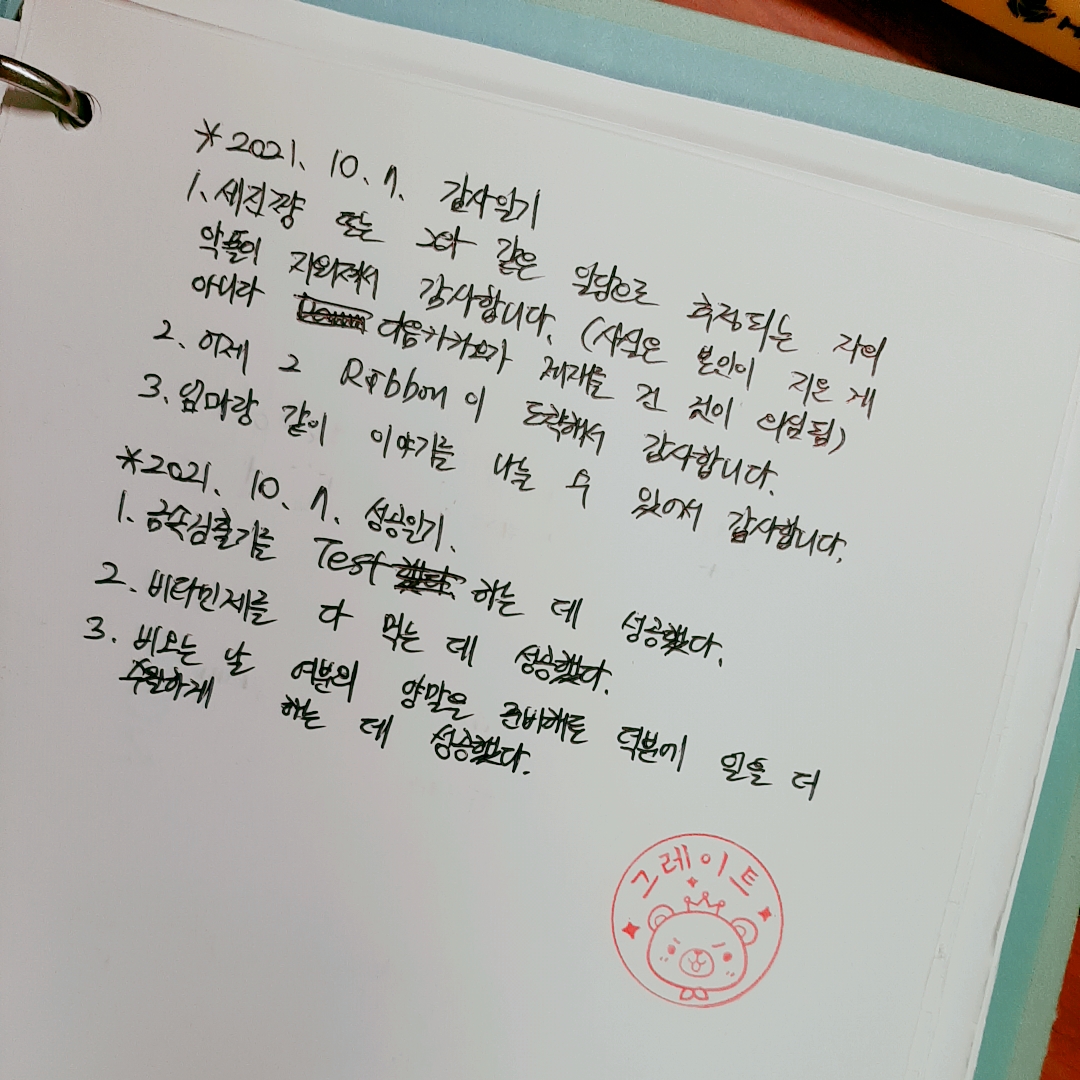 *2021. 10. 7. 감사일기
1. 세진쨩 또는 그와 같은 일당으로 추정되는 자의
악플이 지워져서 감사합니다. (사실은 본인이 지운 게
아니라 다음카카오가 제재를 건 것이 의심됨)
2. 어제 2 Ribbon이 도착해서 감사합니다.
3. 엄마랑 같이 이야기를 나눌 수 있어서 감사합니다.
*2021. 10. 7. 성공일기.
1. 금속검출기를 Test 하는 데 성공했다.
2. 비타민제를 다 먹는 데 성공했다.
3. 비오는 날 여분의 양말을 준비해둔 덕분에 일을 더
수월하게 하는 데 성공했다.
그레이트